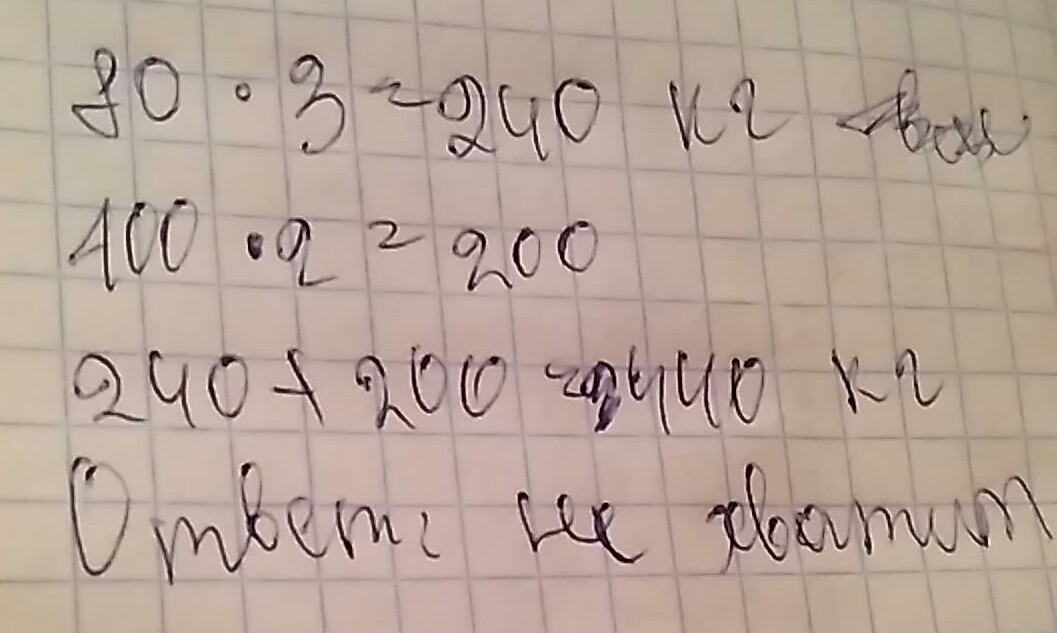 80 · 3 = 240 кг
100 · 2 = 200
240 + 200 = 440 кг
Ответ: не хватит